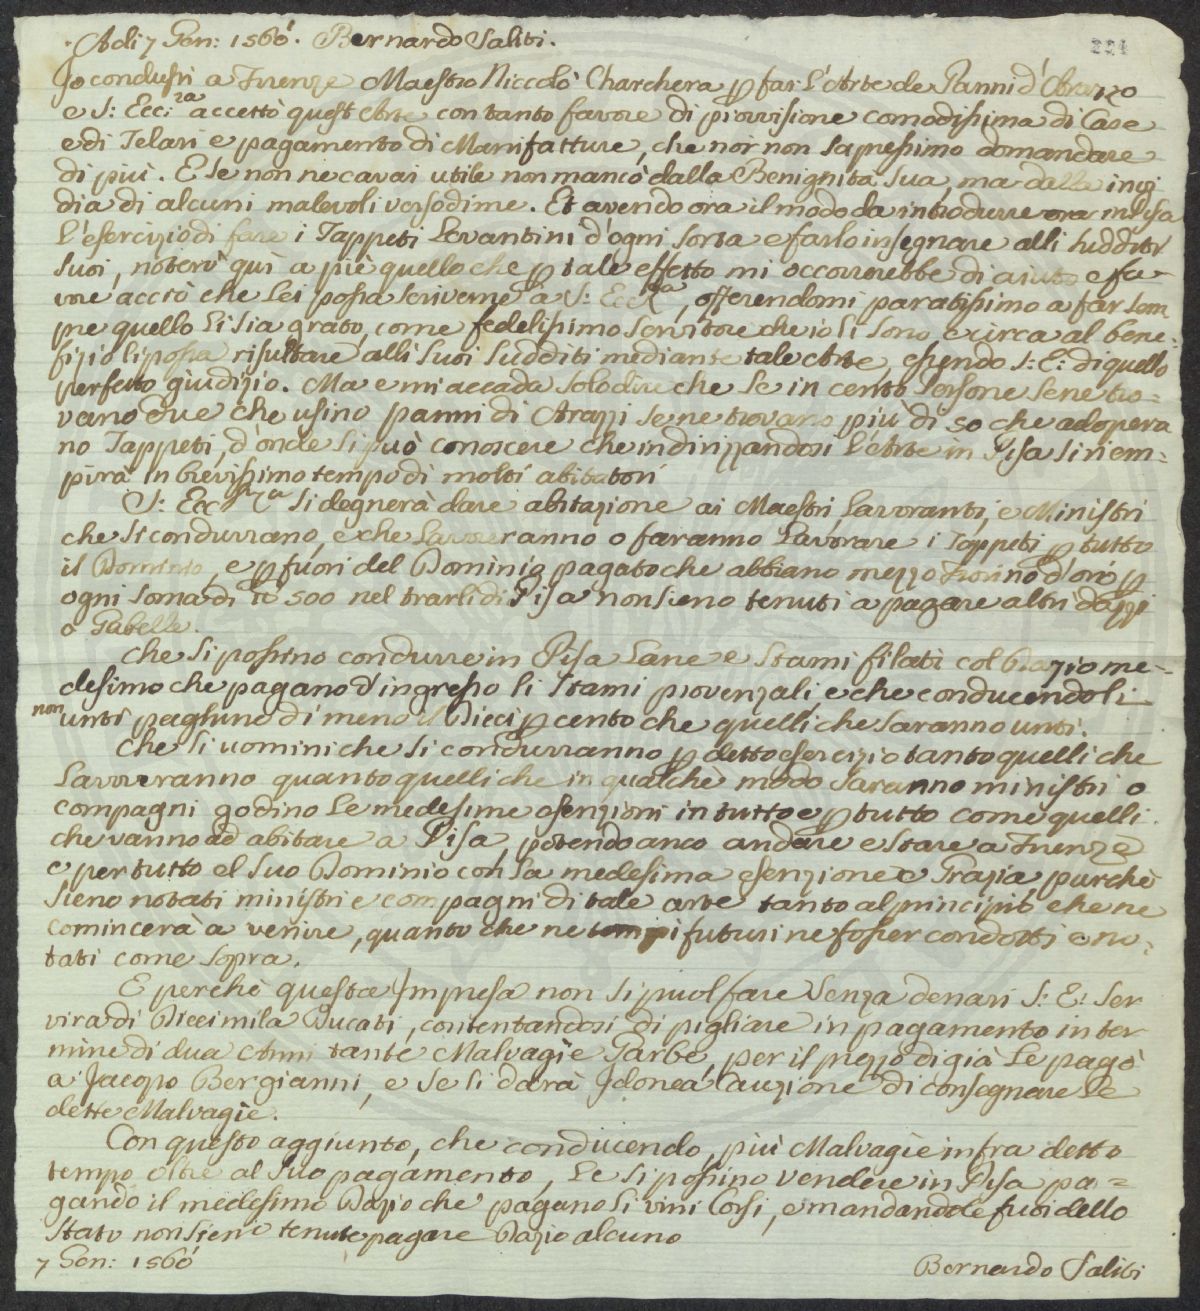 Adi 7 Gen: 1560. Bernardo Saliti.
221
Jo condussi a Firenze Maestro Niccolò Charchera p far l'Arte de Panni d'Arazzo
e S: Ecc:za accettò quest'Arte con tanto favore di provvisione comodissima di Case
e di Telari e pagamento di Manifatture, che noi non sapressimo domandare
di più. E se non ne cavai utile non mancò dalla Benignità sua, ma dalla invi
dia di alcuni malevoli verso di me. Et avendo ora il modo da introdurre ora in Pisa
l'esercizio di fare i Tappeti Levantini d'ogni sorta e farlo insegnare alli sudditi
suoi, noterò qui a piè quello che p tale effetto mi occorrerebbe di aiuto e fa-
vore acciò che Lei possa scriverne a S: Ecc:za, offerendomi paratissimo a far sem
pre quello li sia grato, come fedelissimo servitore che io li sono, e circa al bene-
fizio li possa risultare alli suoi sudditi mediante tale Arte, essendo S: E: di quello
perfetto giudizio. Ma e mi accada solo dire che se in cento Persone se ne tro=
vano due che usino panni di Arazzi se ne trovano più di 50 che adopera
no Tappeti, d'onde si può conoscere che indirizzandosi l'Arte in Pisa si riem=
pirà in brevissimo tempo di molti abitatori
S: Ecc:za si degnerà dare abitazione ai Maestri, Lavoranti, e Ministri
che si condurrano, e che Lavoreranno o faranno Lavorare i Tappeti p tutto
il Dominio, e p fuori del Dominio pagato che abbiano mezzo Fiorino d'oro p
ogni soma di 500 nel trarli di Pisa non sieno tenuti a pagare altri dazzi
o Gabelle.
Che si possino condurre in Pisa Lane e Stami filati col Dazio me-
desimo che pagano d'ingresso li Stami provenzali, e che conducendoli
non unti paghino di meno il Dieci p cento che quelli che saranno unti.
Che li uomini che si condurranno p detto esercizio tanto quelli che
Lavoreranno quanto quelli che in qualche modo saranno ministri o
compagni godino le medesime esenzioni in tutto e p tutto come quelli
che vanno ad abitare a Pisa, potendo anco andare e stare a Firenze
e per tutto el suo Dominio con la medesima esenzione e Grazia, purchè
sieno notati ministri e compagni di tale arte tanto al principio che ne
comincerà a venire, quanto che ne tempi futuri ne fosser condotti e no=
tati come sopra.
E perchè questa Impresa non si puol fare senza denari S: E: ser
virà di Diecimila Ducati, contentandosi di pigliare in pagamento in ter
mine di dua Anni tante Malvagìe Garbe, per il prezzo di già le pagò
a Jacopo Bergianni, e se li darà Idonea Cauzione di consegnare le
dette Malvagìe.
Con questo aggiunto, che conducendo più Malvagìe infra detto
tempo oltre al suo pagamento, le si possino vendere in Pisa pa=
gando il medesimo Dazio che pagano li vini Corsi, e mandandole fuori dello
Stato non sieno tenute pagare Dazio alcuno
7 Gen: 1560
Bernardo Saliti